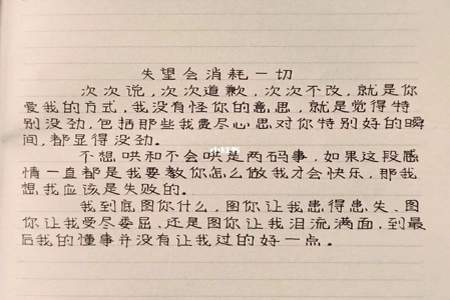 失望会消耗一切
次次谎,次次道歉,次次不改,就是你
爱我的方式,我没有怪你的意思,就是觉得特
别没劲,包括那些我费尽心思对你特别好的瞬
间,都显得没劲。
不想哄和不会哄是两码事,如果这段感
情一直都是我要教你怎么做我才会快乐,那我
想我应该是失败的。
我到底图你什么,图你让我患得患失、图
你让我受尽委屈、还是图你让我泪流满面,到最
后我的懂事并没有让我过的好一点。